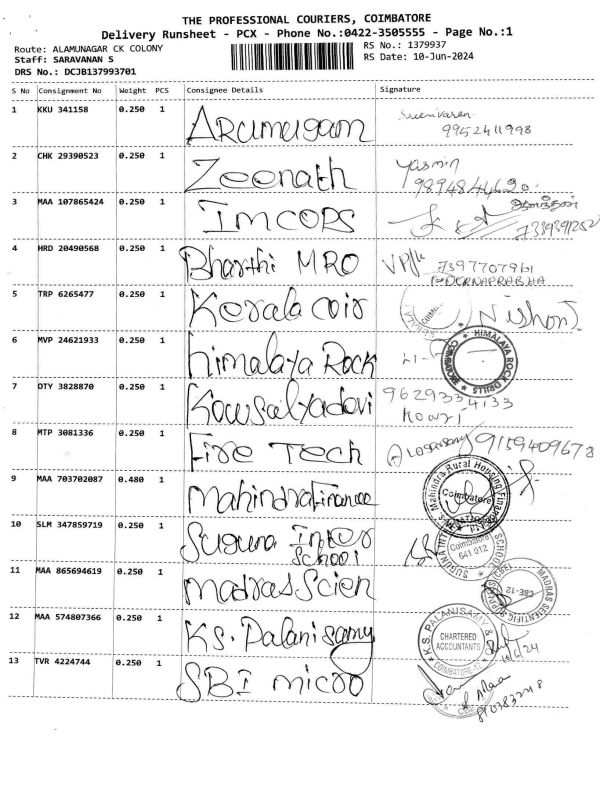 THE PROFESSIONAL COURIERS, COIMBATORE
Delivery Runsheet - PCX - Phone No.:0422-3505555 - Page No.:1
Route: ALAMUNAGAR CK COLONY
RS No.: 1379937
Staff: SARAVANAN S
RS Date: 10-Jun-2024
DRS No.: DCJB137993701
S No Consignment No Weight PCS Consignee Details Signature
1 KKU 341158 0.250 1 Arumugam
9952411998
2 CHK 29390523 0.250 1 Zeenath Yasmin
9894844620
3 MAA 107865424 0.250 1 IMCOPS
7339391252
4 HRD 20490568 0.250 1 Bharthi MRO
7397707961
POORNAPRABHA
5 TRP 6265477 0.250 1 Kerala coir Nishon
6 MVP 24621933 0.250 1 Himalaya Rock
HIMALAYA ROCK DRILLS
COIMBATORE
7 DTY 3828870 0.250 1 Kowsalyadevi 9629334133
8 MTP 3081336 0.250 1 Fire Tech 9159409678
9 MAA 703702087 0.480 1 Mahindra Finance
Mahindra Rural Housing Finance
Coimbatore
10 SLM 347859719 0.250 1 Suguna Inter
School
Coimbatore
641 012
11 MAA 865694619 0.250 1 Madras Scien
MADRAS SCIENTIFIC SUPPLIES (CBE)
CBE-12
12 MAA 574807366 0.250 1 K.S. Palanisamy
K.S. PALANISAMY &
CHARTERED
ACCOUNTANTS
COIMBATORE-12
10/6/24
13 TVR 4224744 0.250 1 SBI micro